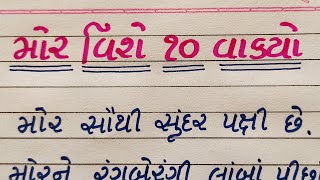 મોર વિશે ૧૦ વાક્યો
મોર સૌથી સુંદર પક્ષી છે.
મોરને રંગબેરંગી લાંબાં પીંછાં